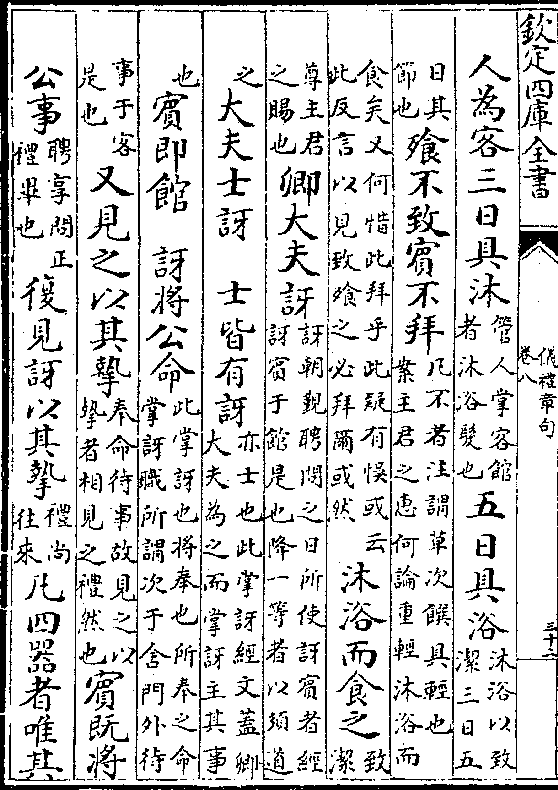 欽定四庫全書
儀禮章句
卷八
三十二
人為客三日具沐管人掌客館者沐浴髮也五日具浴沐浴以致潔三日五
日其節也飧不致賓不拜凡不者注謂草次饌具輕也案主君之惠何論重輕沐浴而
食矣又何惜此拜乎此疑有悞或云此反言以見致飧之必拜爾或然沐浴而食之致潔
尊主君之賜也卿大夫訝訝朝覲聘問之日所使訝賓者經訝賓于館是也降一等者以須道
之大夫士訝 士皆有訝亦士也此掌訝經文蓋卿大夫為之而掌訝主其事
也賓即館 訝將公命此掌訝也將奉也所奉之命掌訝職所謂次于舍門外待
事于客是也又見之以其摯奉命待事故見之以摯者相見之禮然也賓既將
公事聘享問正禮畢也復見訝以其摯禮尚往來凡四器者唯其